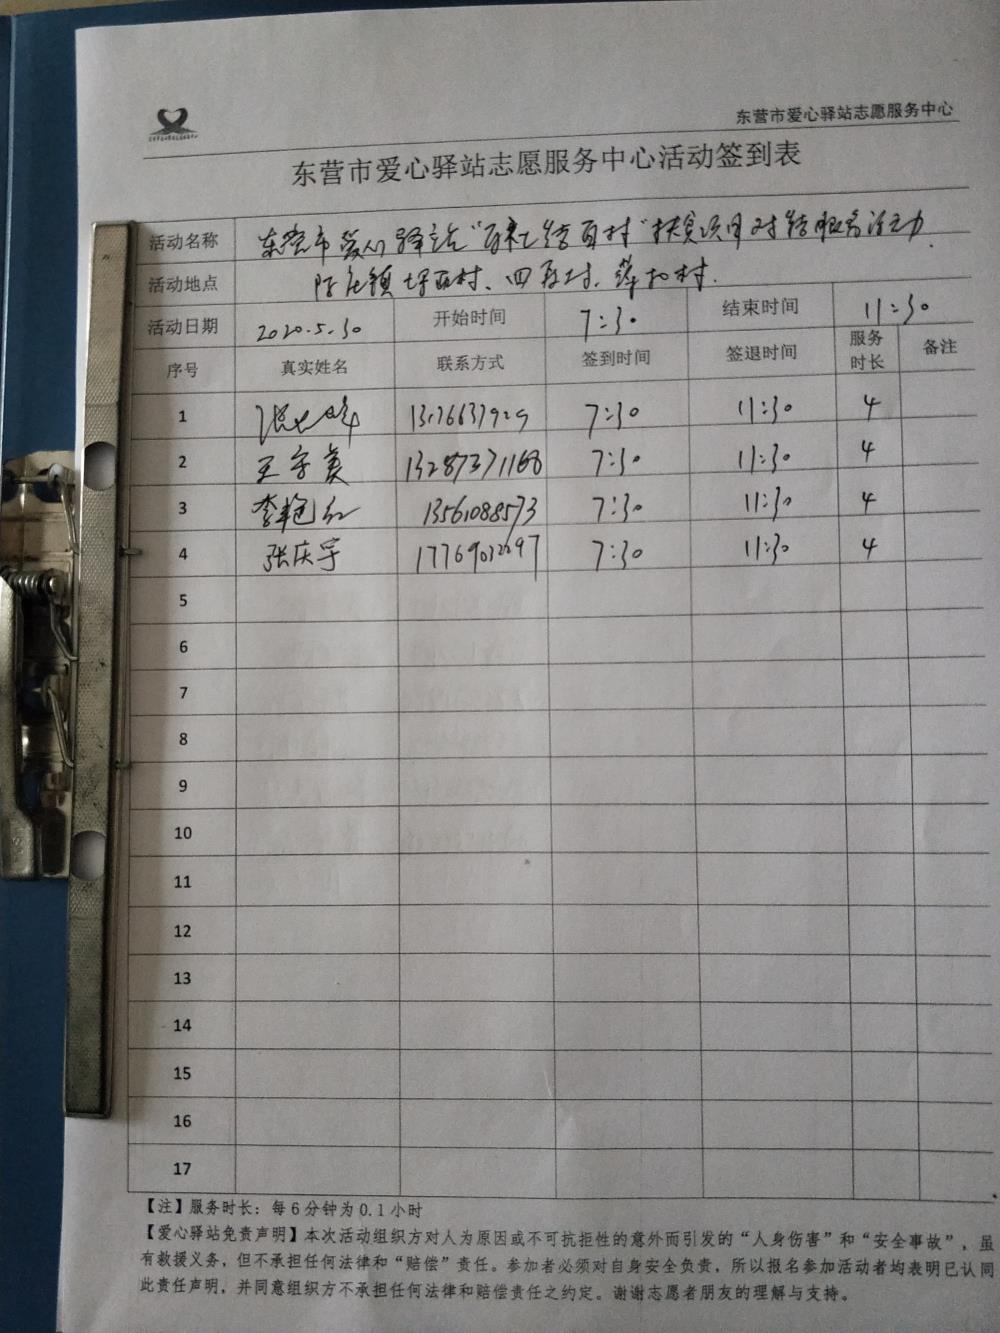 东营市爱心驿站志愿服务中心
东营市爱心驿站志愿服务中心活动签到表
活动名称 东营市爱心驿站"百社结百村"扶贫项目对结服务活动
活动地点 陈庄镇 村、四 村、 村.
活动日期 2020.5.30 开始时间 7:30 结束时间 11:30
序号 真实姓名 联系方式 签到时间 签退时间 服务时长 备注
1 7:30 11:30 4
2 王字美 13287371168 7:30 11:30 4
3 李艳红 13561088573 7:30 11:30 4
4 张庆宇 17769032297 7:30 11:30 4
5
6
7
8
9
10
11
12
13
14
15
16
17
【注】服务时长：每6分钟为0.1小时
【爱心驿站免责声明】本次活动组织方对人为原因或不可抗拒性的意外而引发的“人身伤害”和“安全事故”，虽
有救援义务，但不承担任何法律和“赔偿”责任。参加者必须对自身安全负责，所以报名参加活动者均表明已认同
此责任声明，并同意组织方不承担任何法律和赔偿责任之约定。谢谢志愿者朋友的理解与支持。